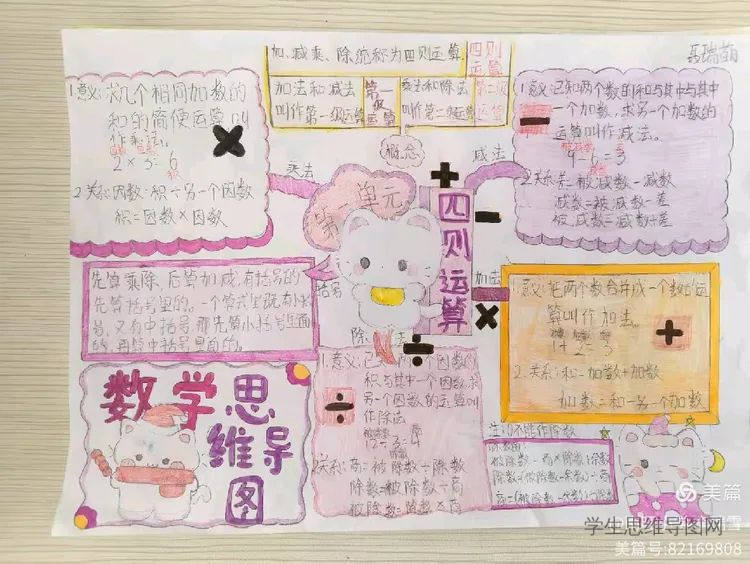 聂瑞萌
加、减、乘、除统称为四则运算
四则运算
加法和减法叫作第一级运算
第一级运算
乘法和除法叫作第二级运算
第二级运算
概念
1.意义:求几个相同加数的
和的简便运算叫
作乘法。
2×3=6
2.关系:因数=积÷另一个因数
积=因数×因数
乘法
减法
1.意义:已知两个数的和与其中与其中
一个加数,求另一个加数的
运算叫作减法。
9-6=3
2.关系:差=被减数-减数
减数=被减数-差
被减数=减数+差
第一单元
四则运算
括号
先算乘除、后算加减,有括号的
先算括号里的。一个算式里既有小括
号,又有中括号,那先算小括号里面
的,再算中括号里面的。
加法
1.意义:把两个数合并成一个数的运
算叫作加法。
1+2=3
2.关系:和=加数+加数
加数=和-另一个加数
除法
1.意义:已知两个因数的
积与其中一个因数,求
另一个因数的运算叫
作除法
12÷3=4
2.关系:商=被除数÷除数
除数=被除数÷商
被除数=除数×商
注:0不能作除数
有余数的:
被除数=商×除数+余数
除数=(被除数-余数)÷商
商=(被除数-余数)÷除数
数学思
维导
图
美篇
学生思维导图网
美篇号:82169808